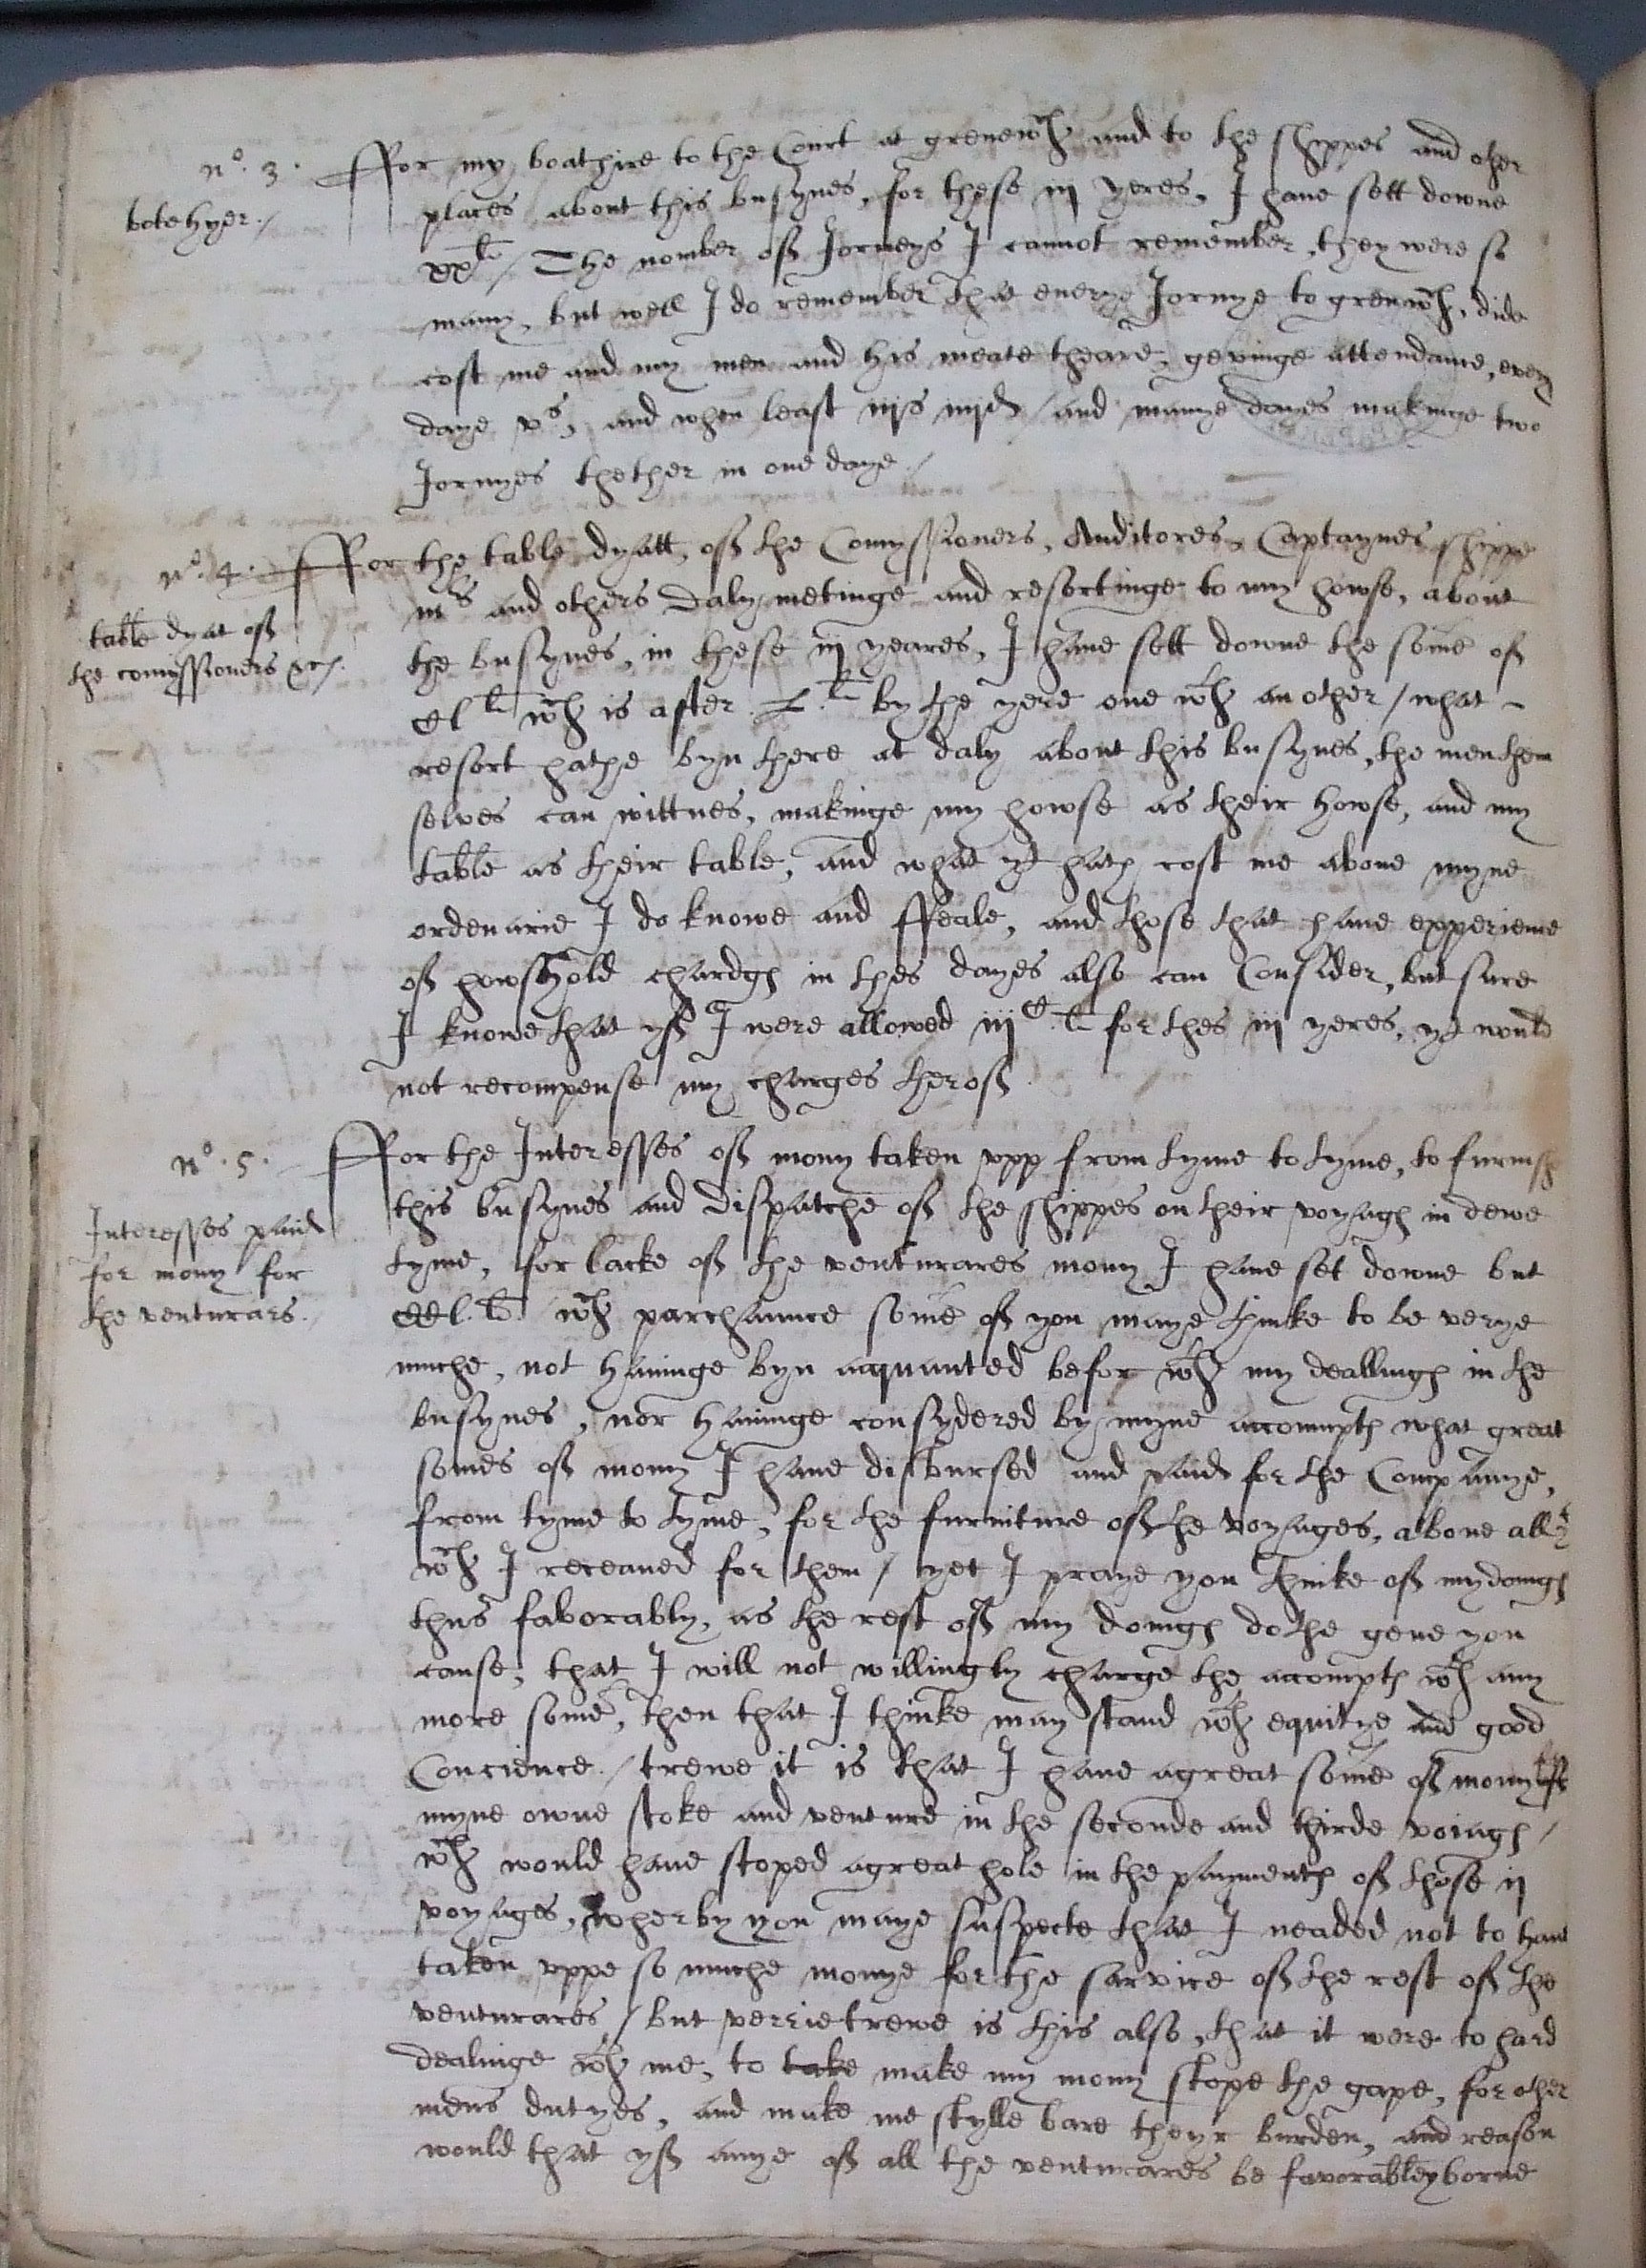 nº. 3.
bote hyer./
ffor my boathire to the Court at grenewch and to the shippes and other
places about this busynes, for these iij yeres, I have sett downe
xxli / The nomber off Jorneys I cannot remember, they were so
many, but well I do remember that everye Jornye to grenwch, did
cost me and my men and his meate theare, gevinge attendance, every
daye vs, and when least iijs iiijd / and manye dayes makinge two
Jornyes thether in one daye /
nº. 4.
table dyat off
the comyssioners &c.
ffor the table dyatt, off the Comyssioners, Auditores, Captaynes shippe
mrs and others daly metinge and resortinge to my howse, about
the busynes, in these iij yeares, I have sett downe the some off
Cl li wch is after L li by the yere one wth an other / what
resort hathe byn there at daly about this busynes, the men them
selves can wittnes, makinge my howse as their howse, and my
table as their table, and what yt hath cost me above myne
ordenarie I do knowe and ffeale, and those that have expperience
off howshold chardgs in thes dayes also can Consider, but sure
I knowe that yff I were allowed iijC li for thes iij yeres, yt would
not recompense my charges theroff.
nº. 5.
Interesses paid
for mony for
the venturars./
ffor the Interesses off mony taken vpp from tyme to tyme, to furnish
this busynes and dispatche off the shippes on their voyags in dewe
tyme, for lacke off the venturares mony I have set downe but
CCl. li / wch parchaunce some off you maye thinke to be verye
muche, not havinge byn acquanted befor wth my deallings in the
busynes, nor havinge consydered by myne accompts what great
somes off mony I have disbursed and paid for the Companye,
from tyme to tyme, for the furniture off the voyages, above all yt
wch I receaved for them / yet I praye you thinke off my doings
thus favorably, as the rest off my doings dothe geve you
cause, that I will not willingly charge the accompts wth any
more some, then that I thinke may stand wth equitye and good
Concience. / trewe it is that I have a great some off mony off
myne owne stoke and venture in the seconde and thirde voiags /
wch would have stoped a great hole in the payments off those ij
voyages, wherby you maye suspecte that I neaded not to have
taken vppe so muche monye for the sarvice off the rest off the
venturares, / but verrie trewe is this also, that it were to hard
dealinge wth me, to take make my mony stope the gape, for other
mens dutyes, and make me stylle bare theyr burden, and reason
would that yff anye off all the venturares be favorabley borne